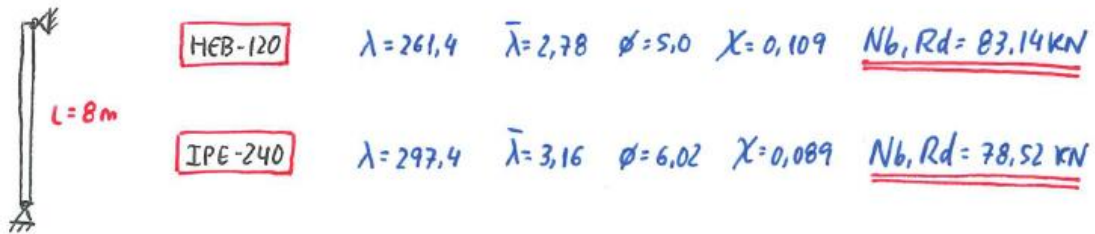 HEB-120 λ=261,4 λ̄=2,78 ø=5,0 χ=0,109 Nb,Rd=83,14 KN
L=8m
IPE-240 λ=297,4 λ̄=3,16 ø=6,02 χ=0,089 Nb,Rd=78,52 KN